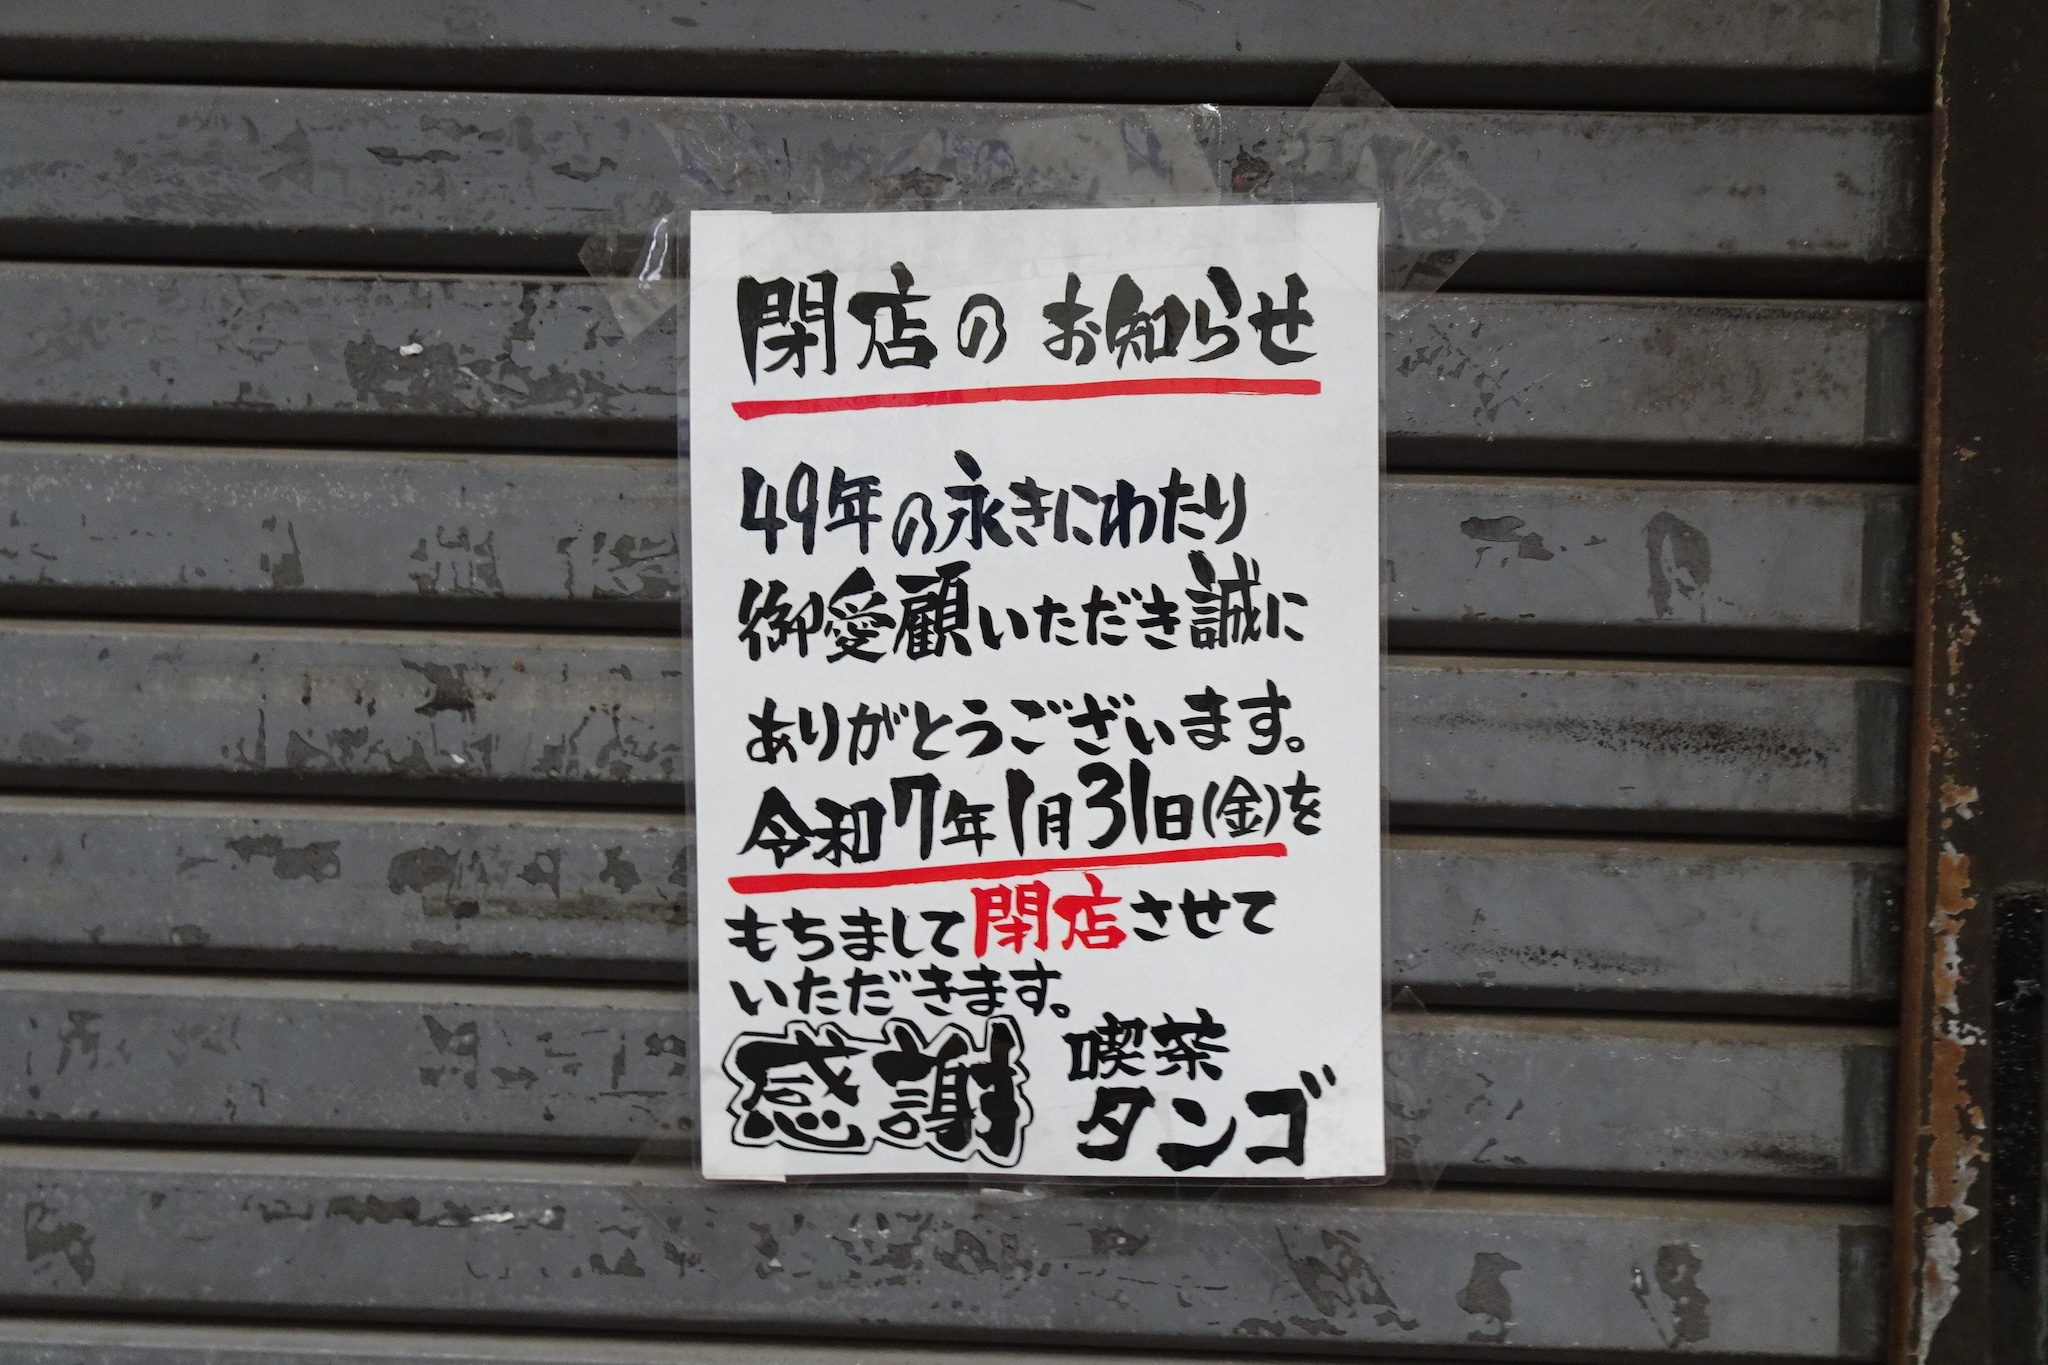 閉店のお知らせ
49年の永きにわたり
御愛顧いただき誠に
ありがとうございます。
令和7年1月31日(金)を
もちまして閉店させて
いただきます。
感謝
喫茶
タンゴ